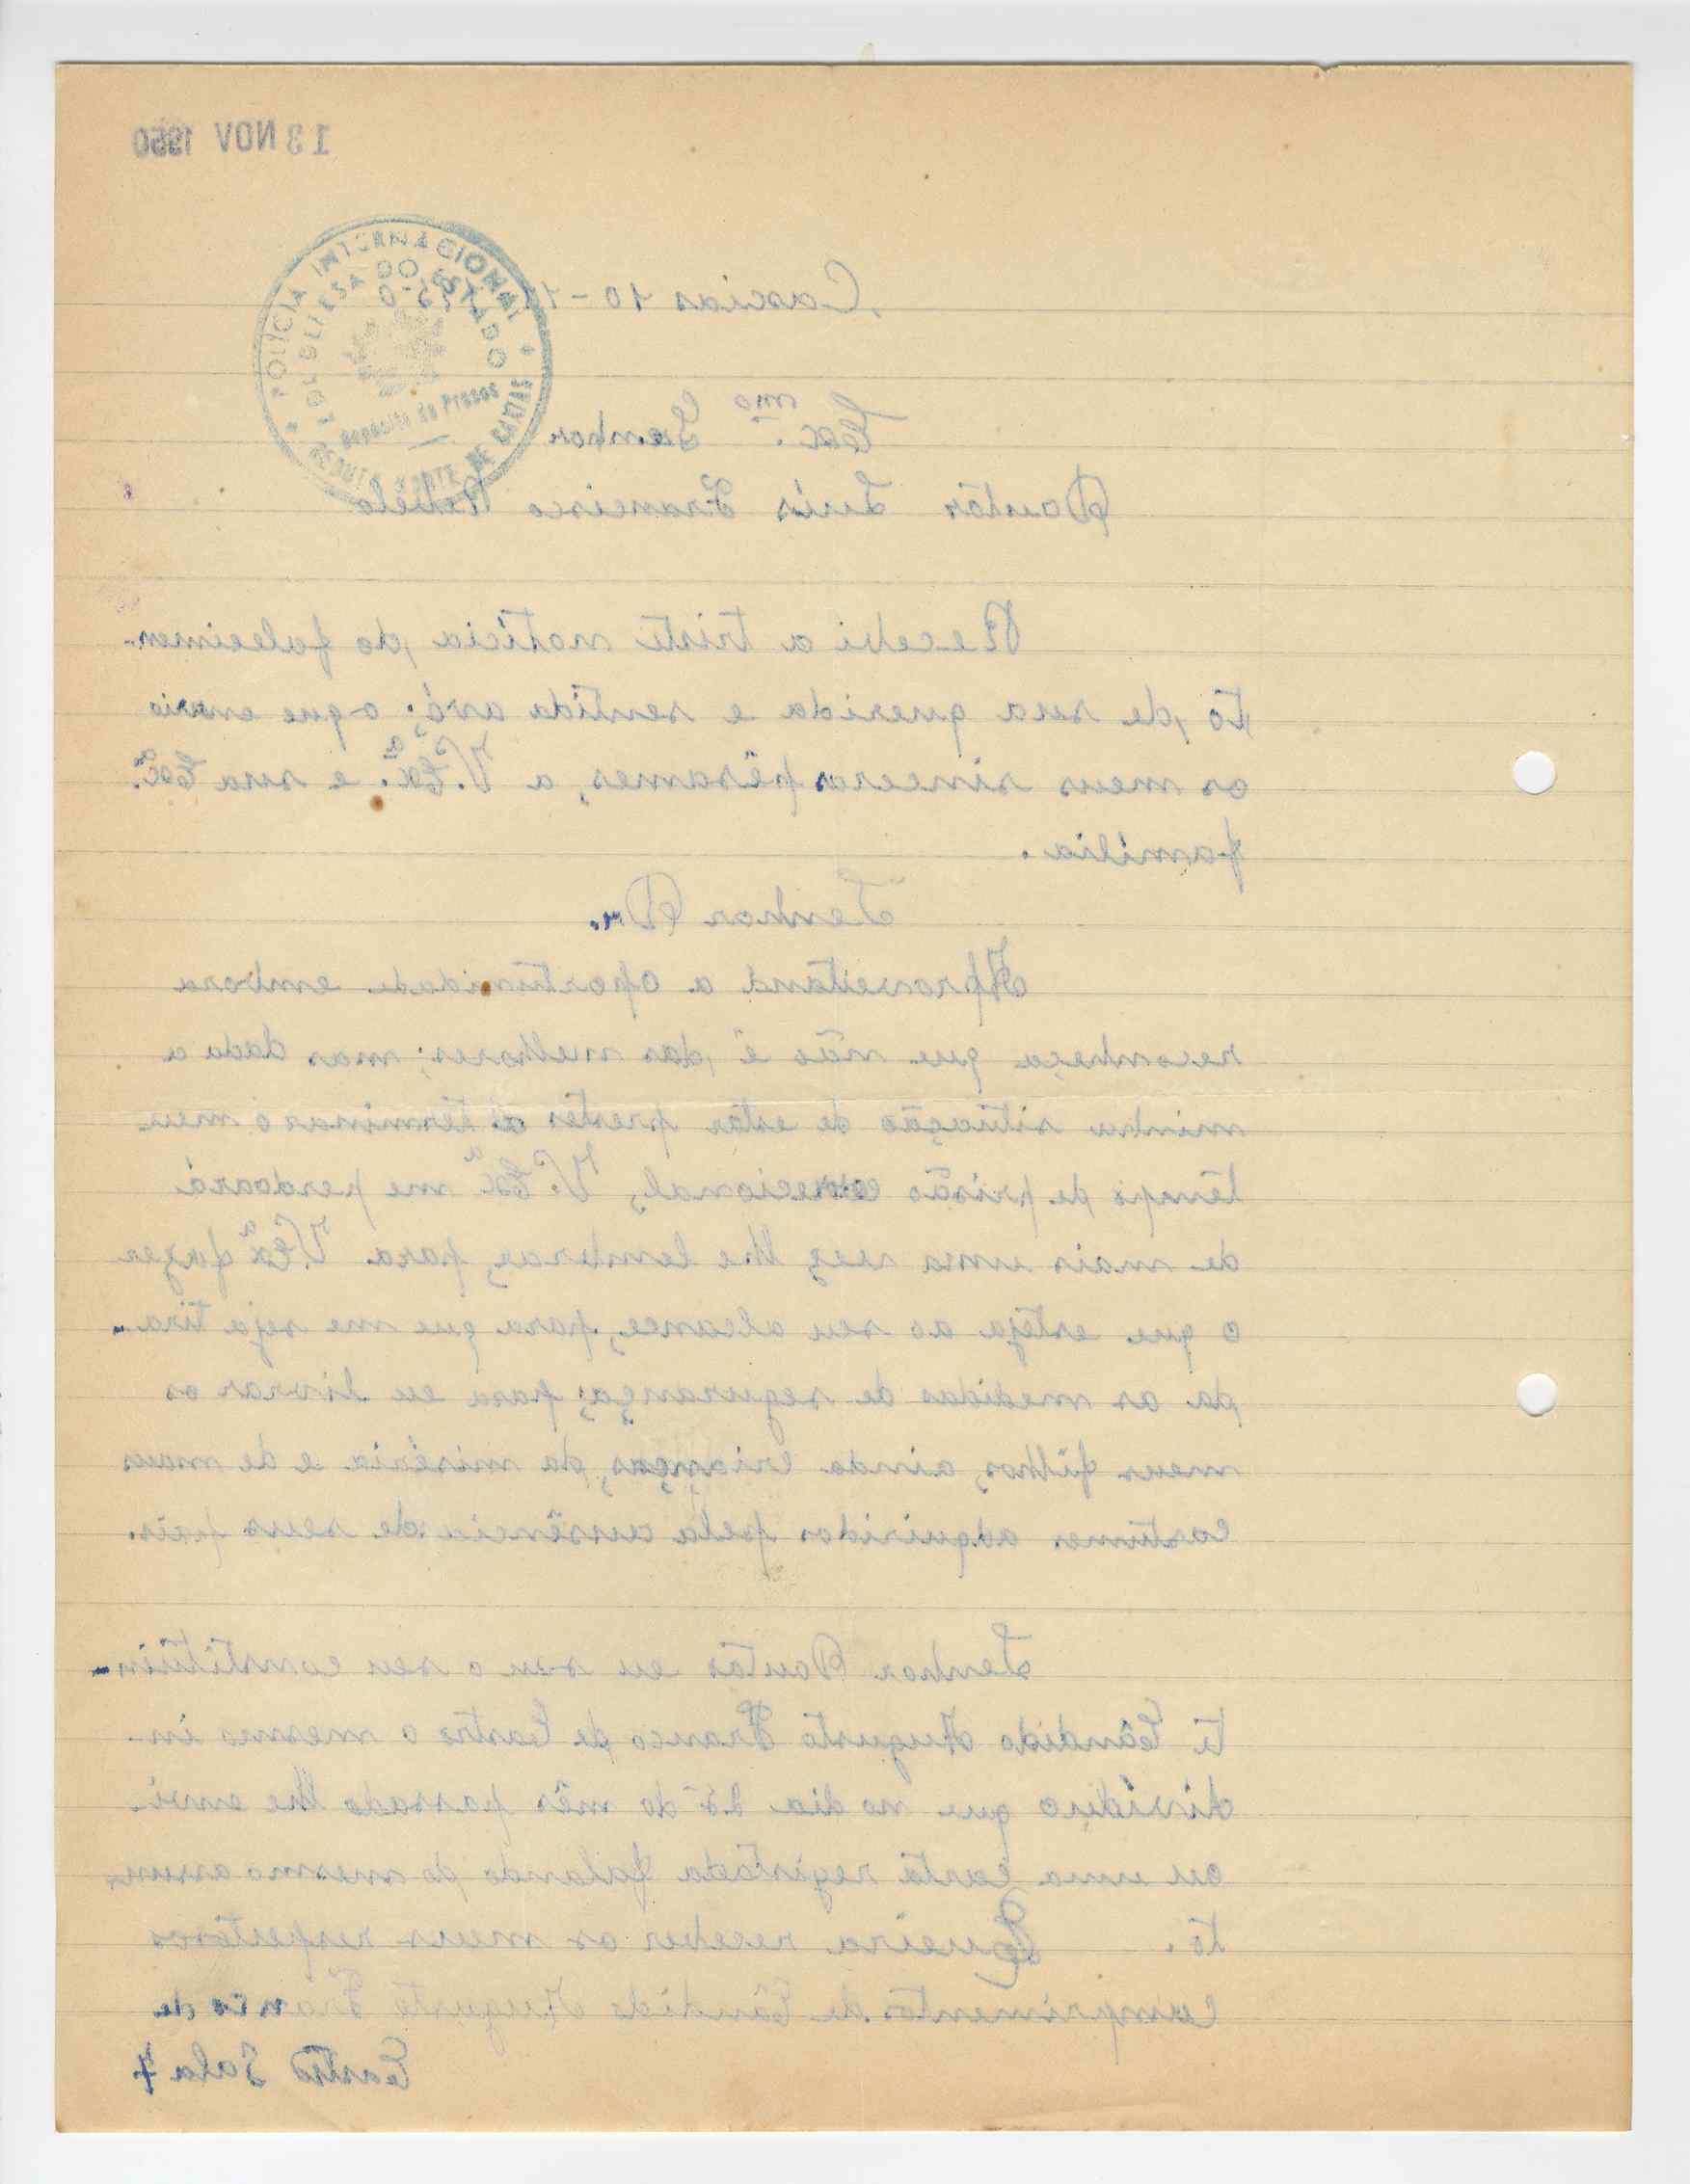 13 NOV 1950
POLÍCIA INTERNACIONAL
PORTUGUESA DO ESTADO
Depósito de Presos
REDUTO NORTE DE CAXIAS
Caxias 10-11-950
Ex.mo Senhor
Doutôr Luís Francisco Rebêlo
Recebi a triste notícia, do falecimen-
to, de sua querida e sentida avó; o que envio
os meus sinceros pêsames, a V. Ex.ª e sua Ex.ª
família.
Senhor Dr.
Aproveitand a oportunidade embora
reconheça que não é das melhores; mas dada a
minha situação de estár prestes a terminar o meu
tempo de prisão correcional, V. Exª me perdoará
de mais uma vez lhe lembrar, para V. Exª fazer
o que esteja ao seu alcance, para que me seja tira-
da as medidas de segurança; para eu livrar os
meus filhos, ainda crianças, da miséria e de maus
costumes adquiridos pela ausência de seus pais.
Senhor Doutôr eu sou o seu constituin-
te Cândido Augusto Franco de Castro o mesmo in-
divíduo que no dia 25 do mês passado lhe envi-
ou uma carta registada falando do mesmo assun-
to. Queira receber os meus respeitosos
cumprimentos de Cândido Augusto Franco de
Castro Sala 4